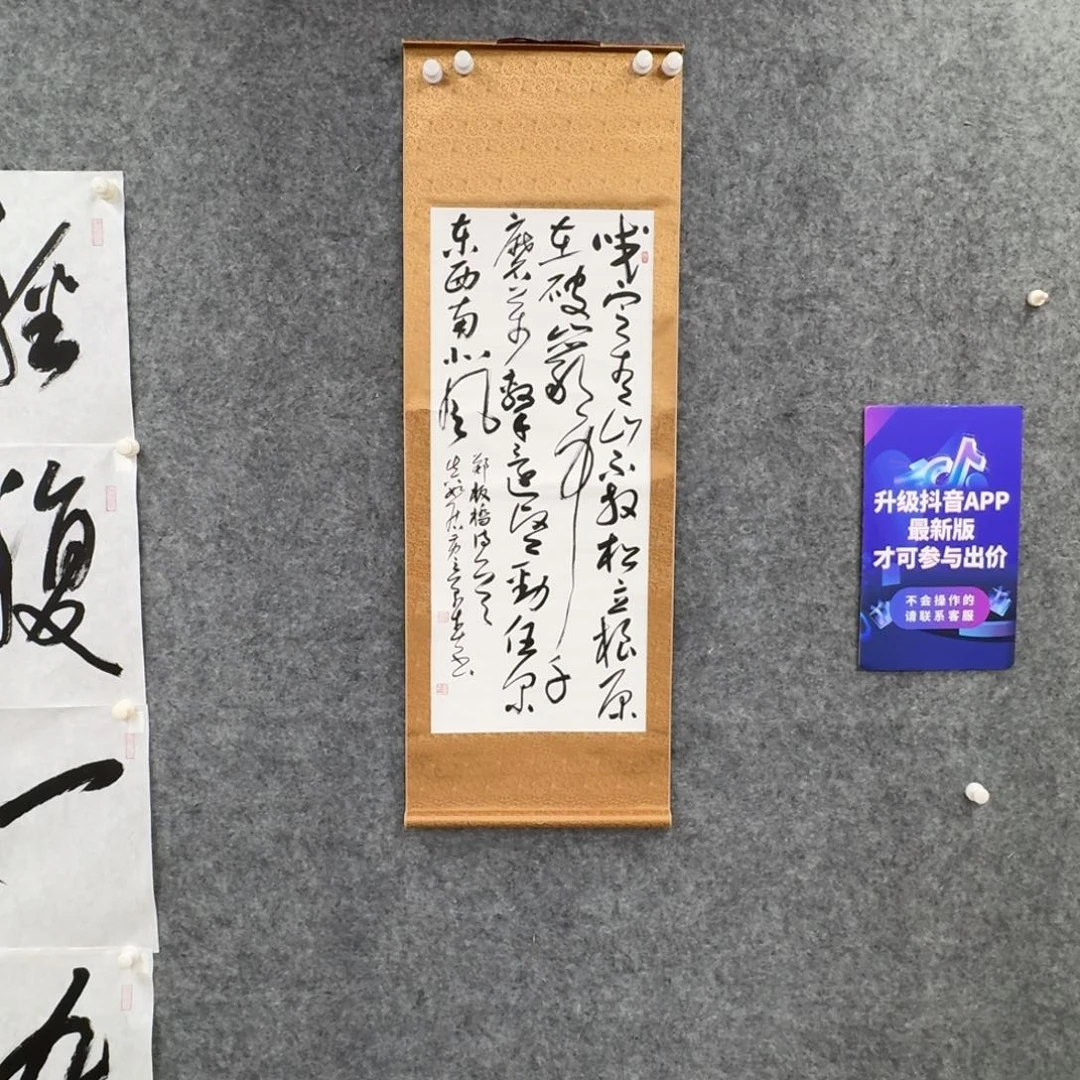 咬定青山不放松立根原
在破巖中千
磨萬擊還堅勁任尔
东西南北风
郑板桥诗一首
一
升级抖音APP
最新版
才可参与出价
不会操作的
请联系客服